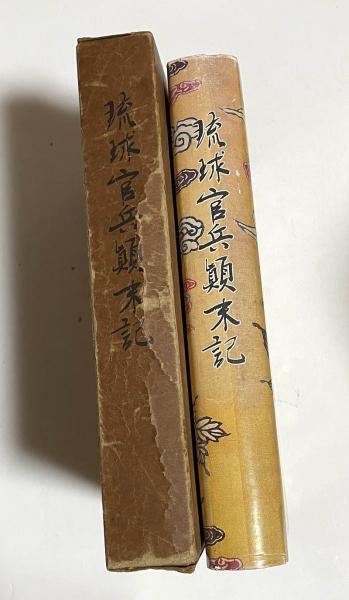 琉球官兵顛末記
琉球官兵顛末記